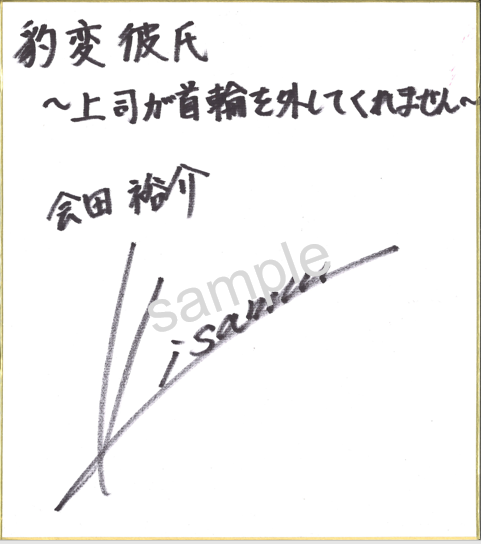 豹変彼氏
～上司が首輪を外してくれません～
会田 裕介
sample